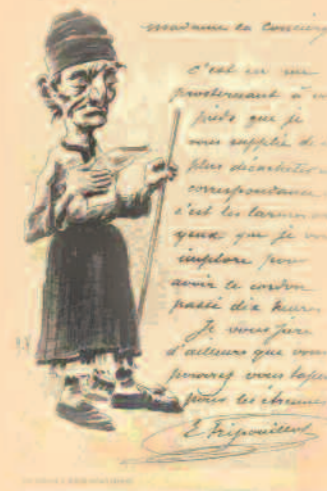 madame la Concierg
c'est en me
prosternant à vo
pieds que je
vous supplie de n
plus décacheter m
correspondance
c'est les larmes au
yeux que je vou
implore pour
avoir le cordon
passé dix heures
Je vous jure
d'ailleurs que vous
pouvez vous taper
pour les étrennes
E Fripouillot